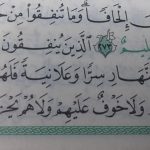 إِلْحَافًا ۗ وَمَا تُنفِقُوا۟ مِنْ
٢٧٣ ٱلَّذِينَ يُنفِقُونَ
سِرًّا وَعَلَانِيَةً فَلَهُمْ
وَلَا خَوْفٌ عَلَيْهِمْ وَلَا هُمْ